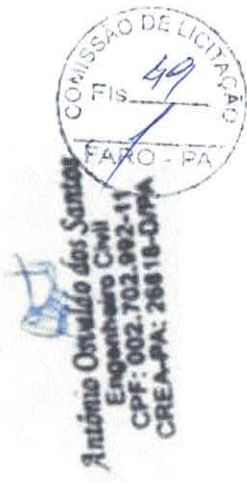 COMISSÃO DE LICITAÇÃO
Fls. 49
FARO - PA
Antônio Osvaldo dos Santos
Engenheiro Civil
CPF: 002.702.992-11
CREA-PA: 26818-D/PA